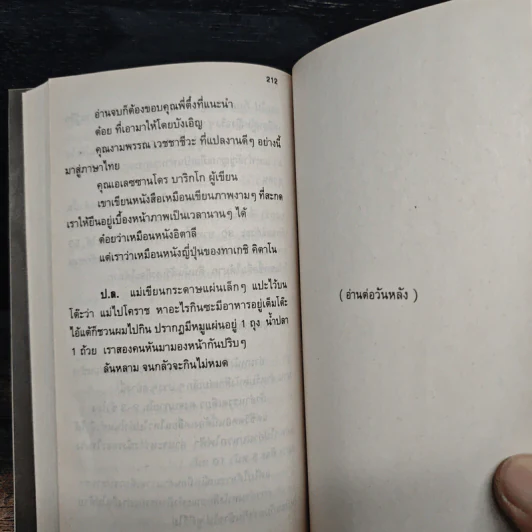 212
อ่านจบก็ต้องขอบคุณพี่ตึ๋งที่แนะนำ
ต๋อย ที่เอามาให้โดยบังเอิญ
คุณงามพรรณ เวชชาชีวะ ที่แปลงานดีๆ อย่างนี้
มาสู่ภาษาไทย
คุณอเลซซานโดร บาริกโก ผู้เขียน
เขาเขียนหนังสือเหมือนเขียนภาพงามๆ ที่สะกด
เราให้ยืนอยู่เบื้องหน้าภาพเป็นเวลานานๆ ได้
ต๋อยว่าเหมือนหนังอิตาลี
แต่เราว่าเหมือนหนังญี่ปุ่นของทาเกชิ คิตาโน
ป.ล. แม่เขียนกระดาษแผ่นเล็กๆ แปะไว้บน
โต๊ะว่า แม่ไปโคราช หาอะไรกินซะมีอาหารอยู่เต็มโต๊ะ
ไอ้แต้ก็ชวนผมไปกิน ปรากฏมีหมูแผ่นอยู่ 1 ถุง น้ำปลา
1 ถ้วย เราสองคนหันมามองหน้ากันปริบๆ
ล้นหลาม จนกลัวจะกินไม่หมด
(อ่านต่อวันหลัง)